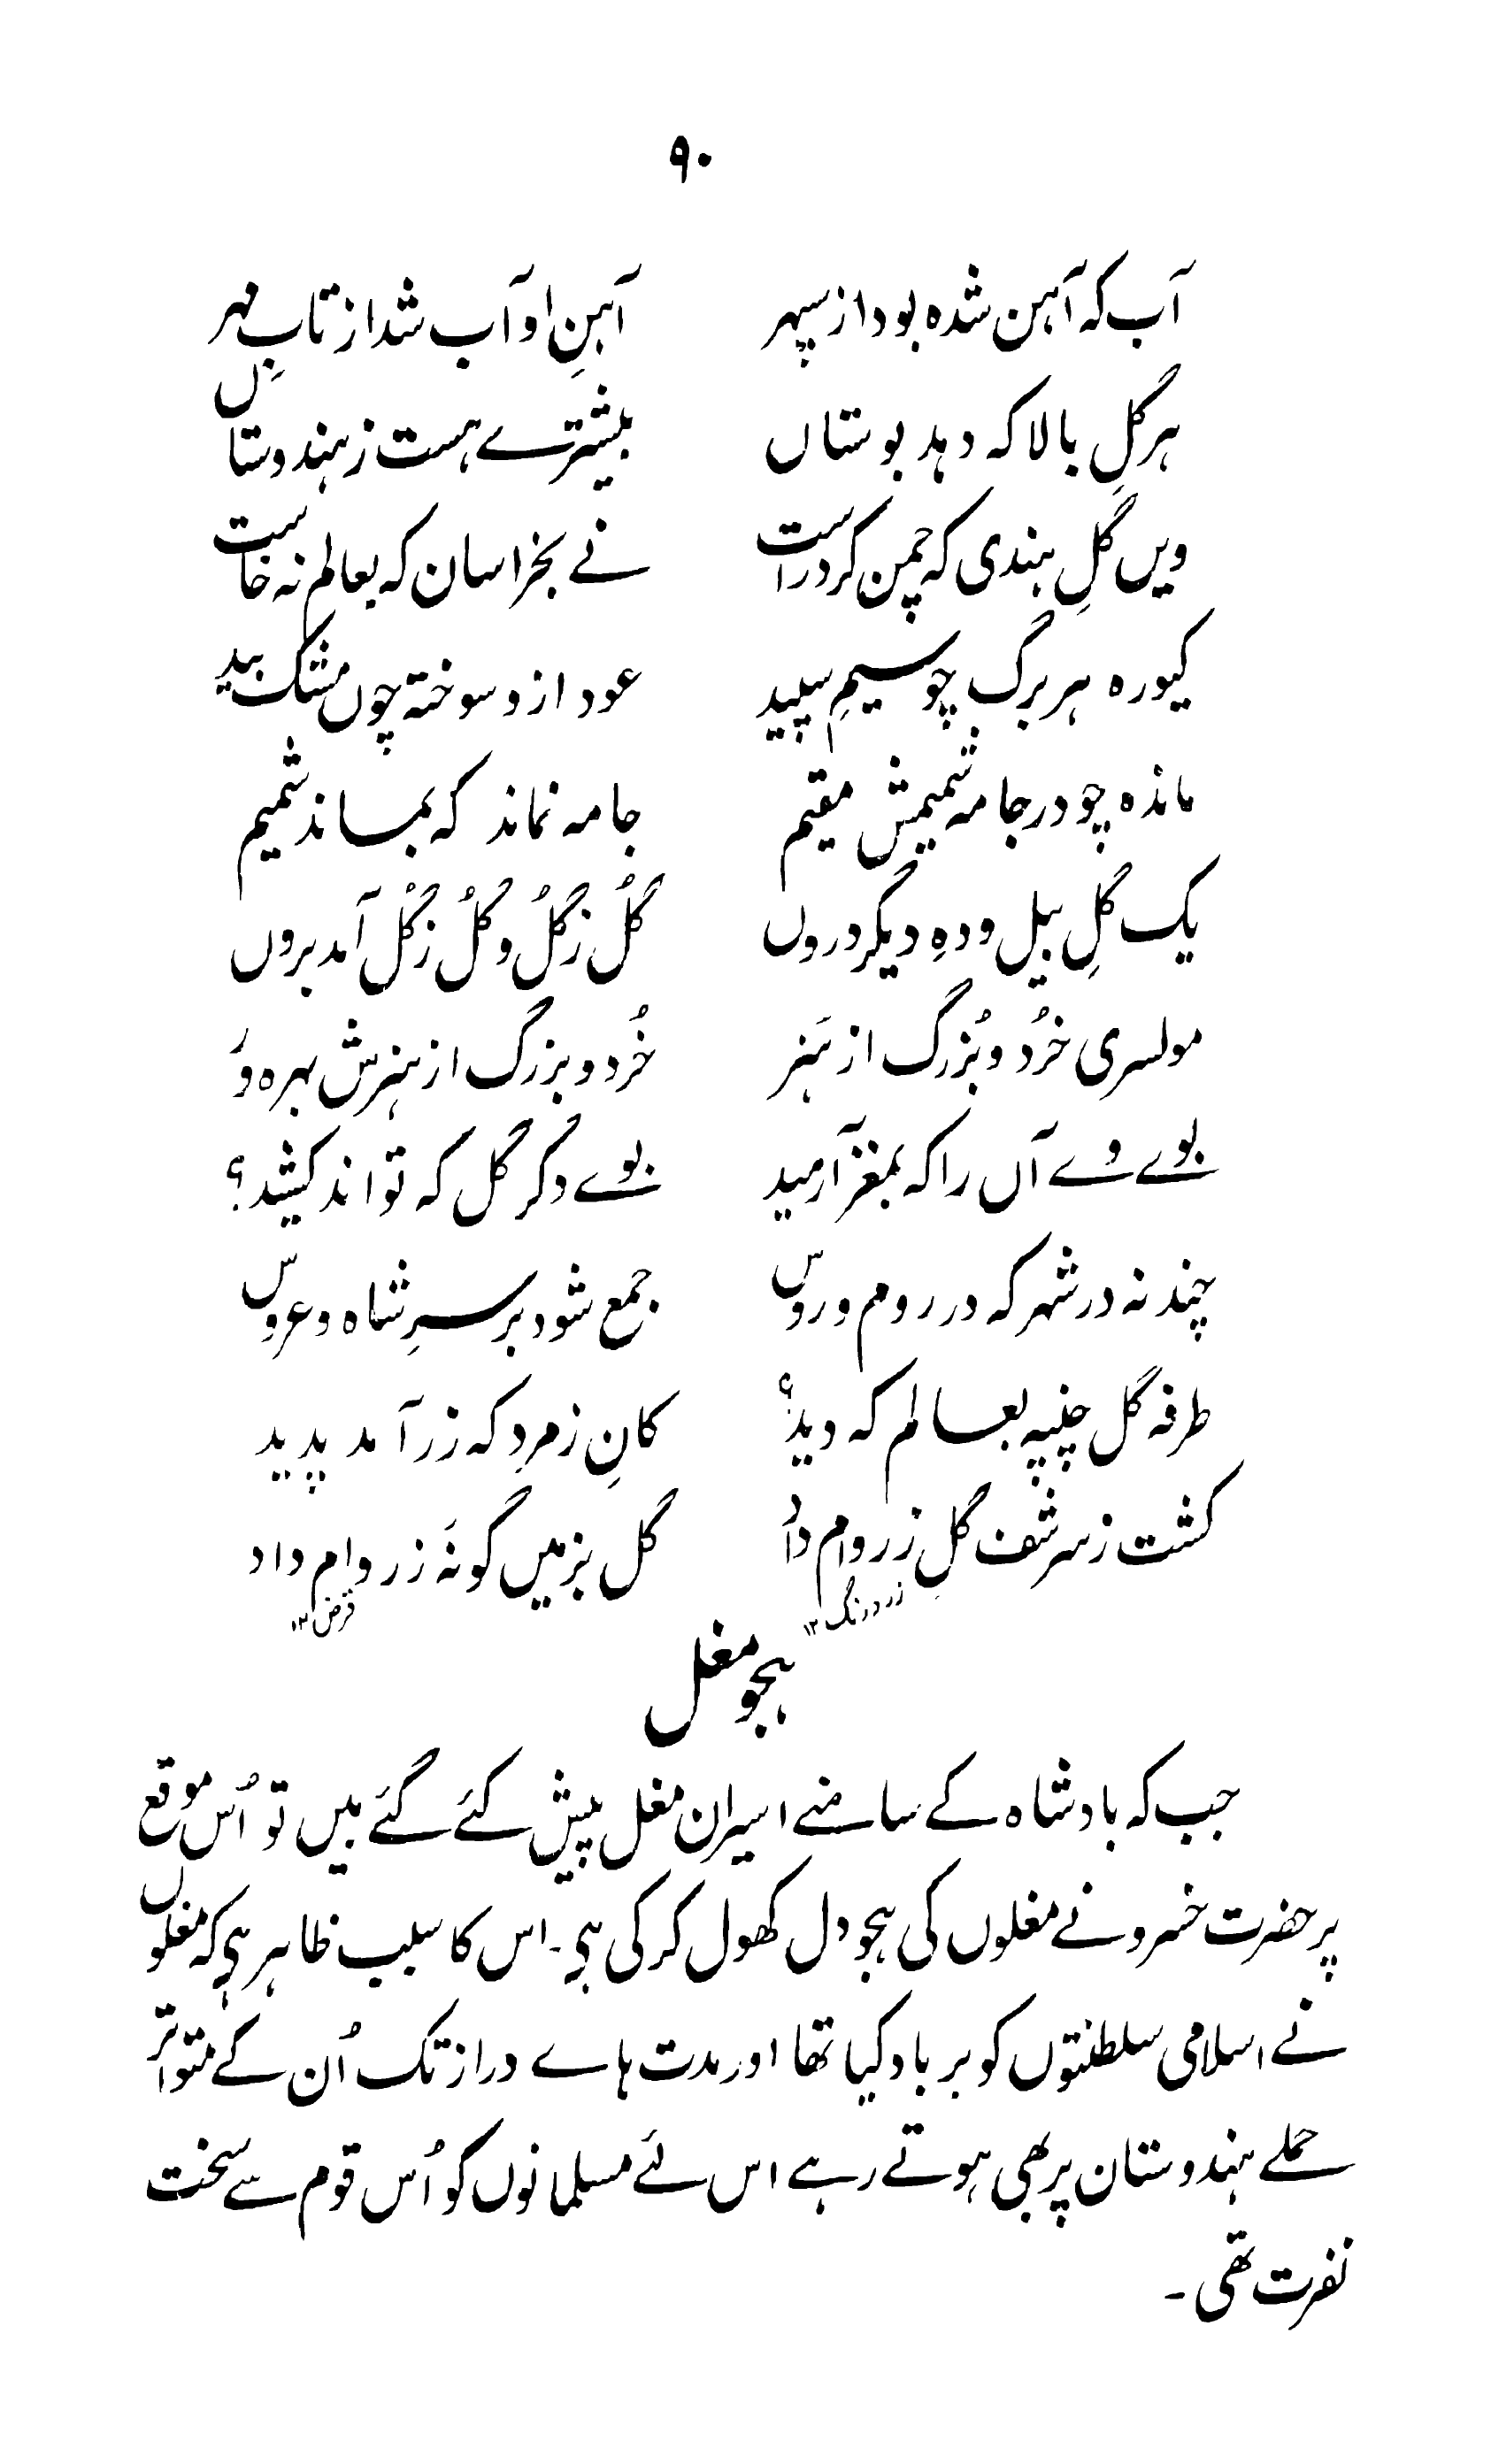 ۹۰
آب کہ آہن شدہ بود از سپہر آہنِ او آب شد از تابِ مہر
ہر گلِ بالا کہ دہد بوستاں بیشترے ہست ز ہندوستاں
ویں گلِ ہندی کہ چمن کرد راست نے بخراسان کہ بعالم نہ خاست
کیورہ ہر برگ چو سیمِ سپید عود ازو سوختہ چوں مشک بید
ماندہ چو در جامہ شمیمش مقیم جامہ نماند کہ بماند شمیم
یک گلِ بیل و دہِ دیگر دروں گُل ز گُل و گُل ز گُل آمد بروں
مولسری خُرد و بُزرگ از ہَنر خُرد و بزرگ از ہنرش بہرہ وَر
بوے وے آں را کہ بمغز آرمید بوے دگر گل کہ تواند کشید؟
چند نہ در شہر کہ در روم و روس جمع شود بر سرِ شاہ و عروس
طرفہ گل چنپہ بعالم کہ دید؟ کانِ زمرد کہ زر آمد پدید
کشت ز سر شف گلِ زر وام داد گل بزمیں گونہَ زر وام داد
زرد رنگ ۱۲ قرض ۱۲
ہجو مغل
جب کہ بادشاہ کے سامنے اسیران مغل پیش کئے گئے ہیں تو اُس موقع
پر حضرت خسرو نے مغلوں کی ہجو دل کھول کر کی ہی۔ اس کا سبب ظاہر ہی کہ مغلوں
نے اسلامی سلطنتوں کو برباد کیا تھا اور مدت ہاے دراز تک اُن کے متواتر
حملے ہندوستان پر بھی ہوتے رہے اس لئے مسلمانوں کو اُس قوم سے سخت
نفرت تھی۔